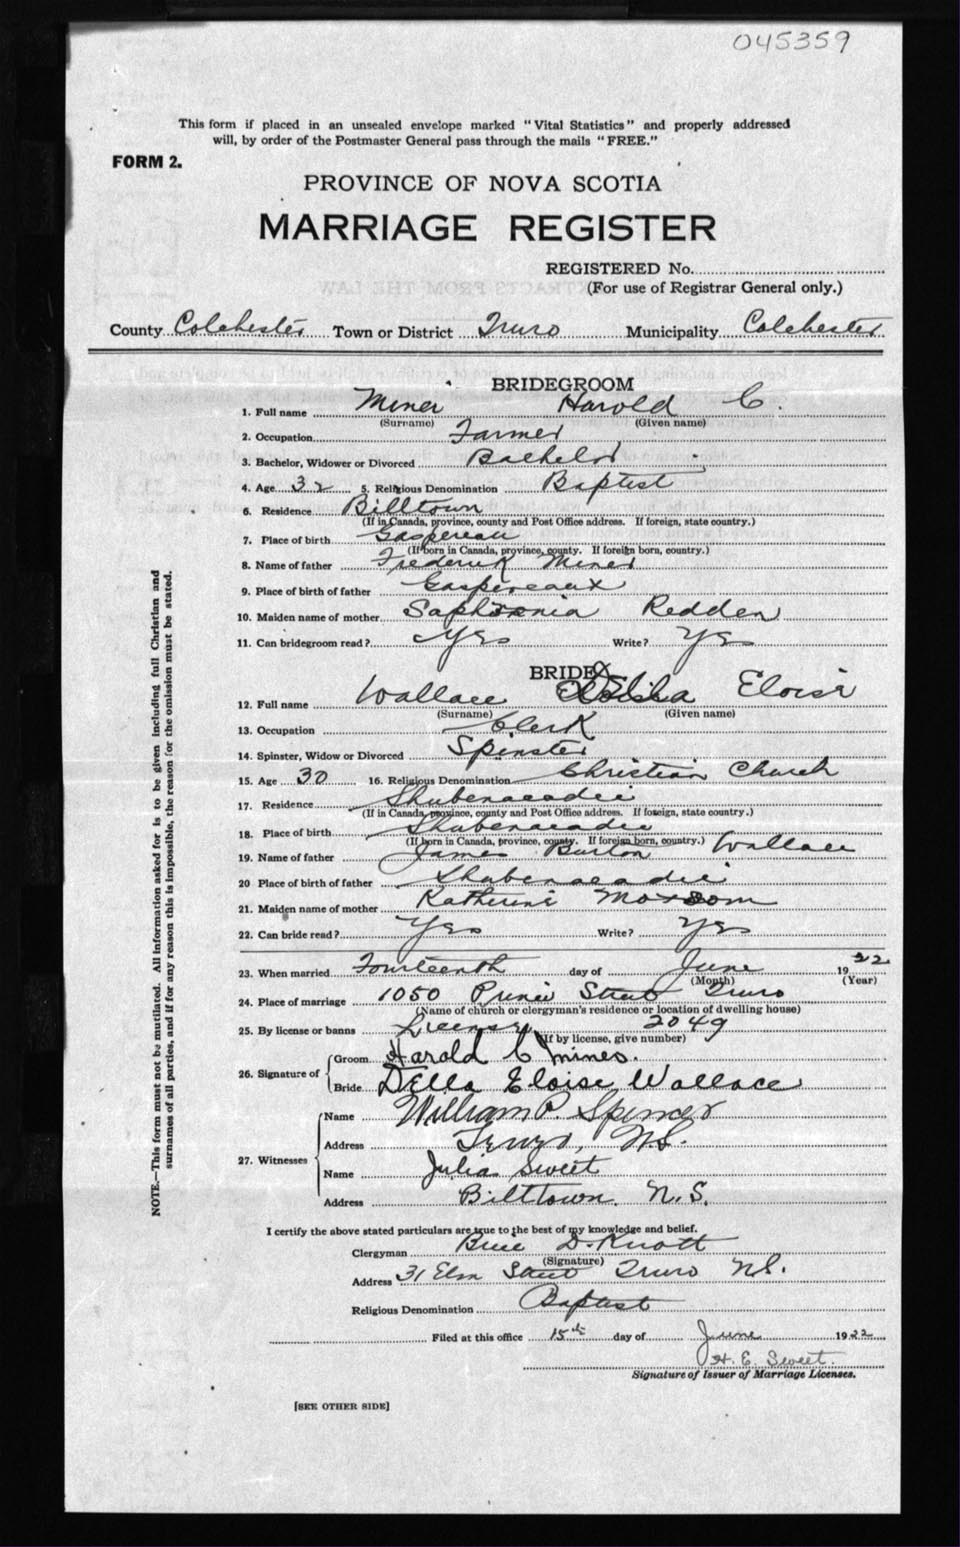 045359
This form if placed in an unsealed envelope marked "Vital Statistics" and properly addressed
will, by order of the Postmaster General pass through the mails "FREE."
FORM 2.
PROVINCE OF NOVA SCOTIA
MARRIAGE REGISTER
REGISTERED No.
(For use of Registrar General only.)
County Colchester Town or District Truro Municipality Colchester
BRIDEGROOM
1. Full name Miner Harold C.
(Surname) (Given name)
2. Occupation Farmer
3. Bachelor, Widower or Divorced Bachelor
4. Age 32 5. Religious Denomination Baptist
6. Residence Billtown
(If in Canada, province, county and Post Office address. If foreign, state country.)
7. Place of birth Gaspereau
(If born in Canada, province, county. If foreign born, country.)
8. Name of father Frederick Miner
9. Place of birth of father Gaspereaux
10. Maiden name of mother Saphronia Redden
11. Can bridegroom read? Yes Write? Yes
BRIDE
12. Full name Wallace Eloise
(Surname) (Given name)
13. Occupation Clerk
14. Spinster, Widow or Divorced Spinster
15. Age 30 16. Religious Denomination Christian Church
17. Residence Shubenacadie
(If in Canada, province, county and Post Office address. If foreign, state country.)
18. Place of birth Shubenacadie
(If born in Canada, province, county. If foreign born, country.)
19. Name of father James Burton Wallace
20 Place of birth of father Shubenacadie
21. Maiden name of mother Katherine
22. Can bride read? Yes Write? Yes
23. When married Fourteenth day of June 1922
(Month) (Year)
24. Place of marriage 1050 Prince Street Truro
(Name of church or clergyman's residence or location of dwelling house)
25. By license or banns License 2049
(If by license, give number)
26. Signature of Groom Harold C Miner.
Bride Della Eloise Wallace
27. Witnesses Name William P. Spencer
Address Truro, N.S.
Name Julia Sweet
Address Billtown. N.S.
I certify the above stated particulars are true to the best of my knowledge and belief.
Clergyman D. Knott
(Signature)
Address 31 Elm Street Truro N.S.
Religious Denomination Baptist
Filed at this office 15th day of June 1922
H. E. Sweet.
Signature of Issuer of Marriage Licenses.
[SEE OTHER SIDE]
NOTE.—This form must not be mutilated. All information asked for is to be given including full Christian and
surnames of all parties, and if for any reason this is impossible, the reason for the omission must be stated.